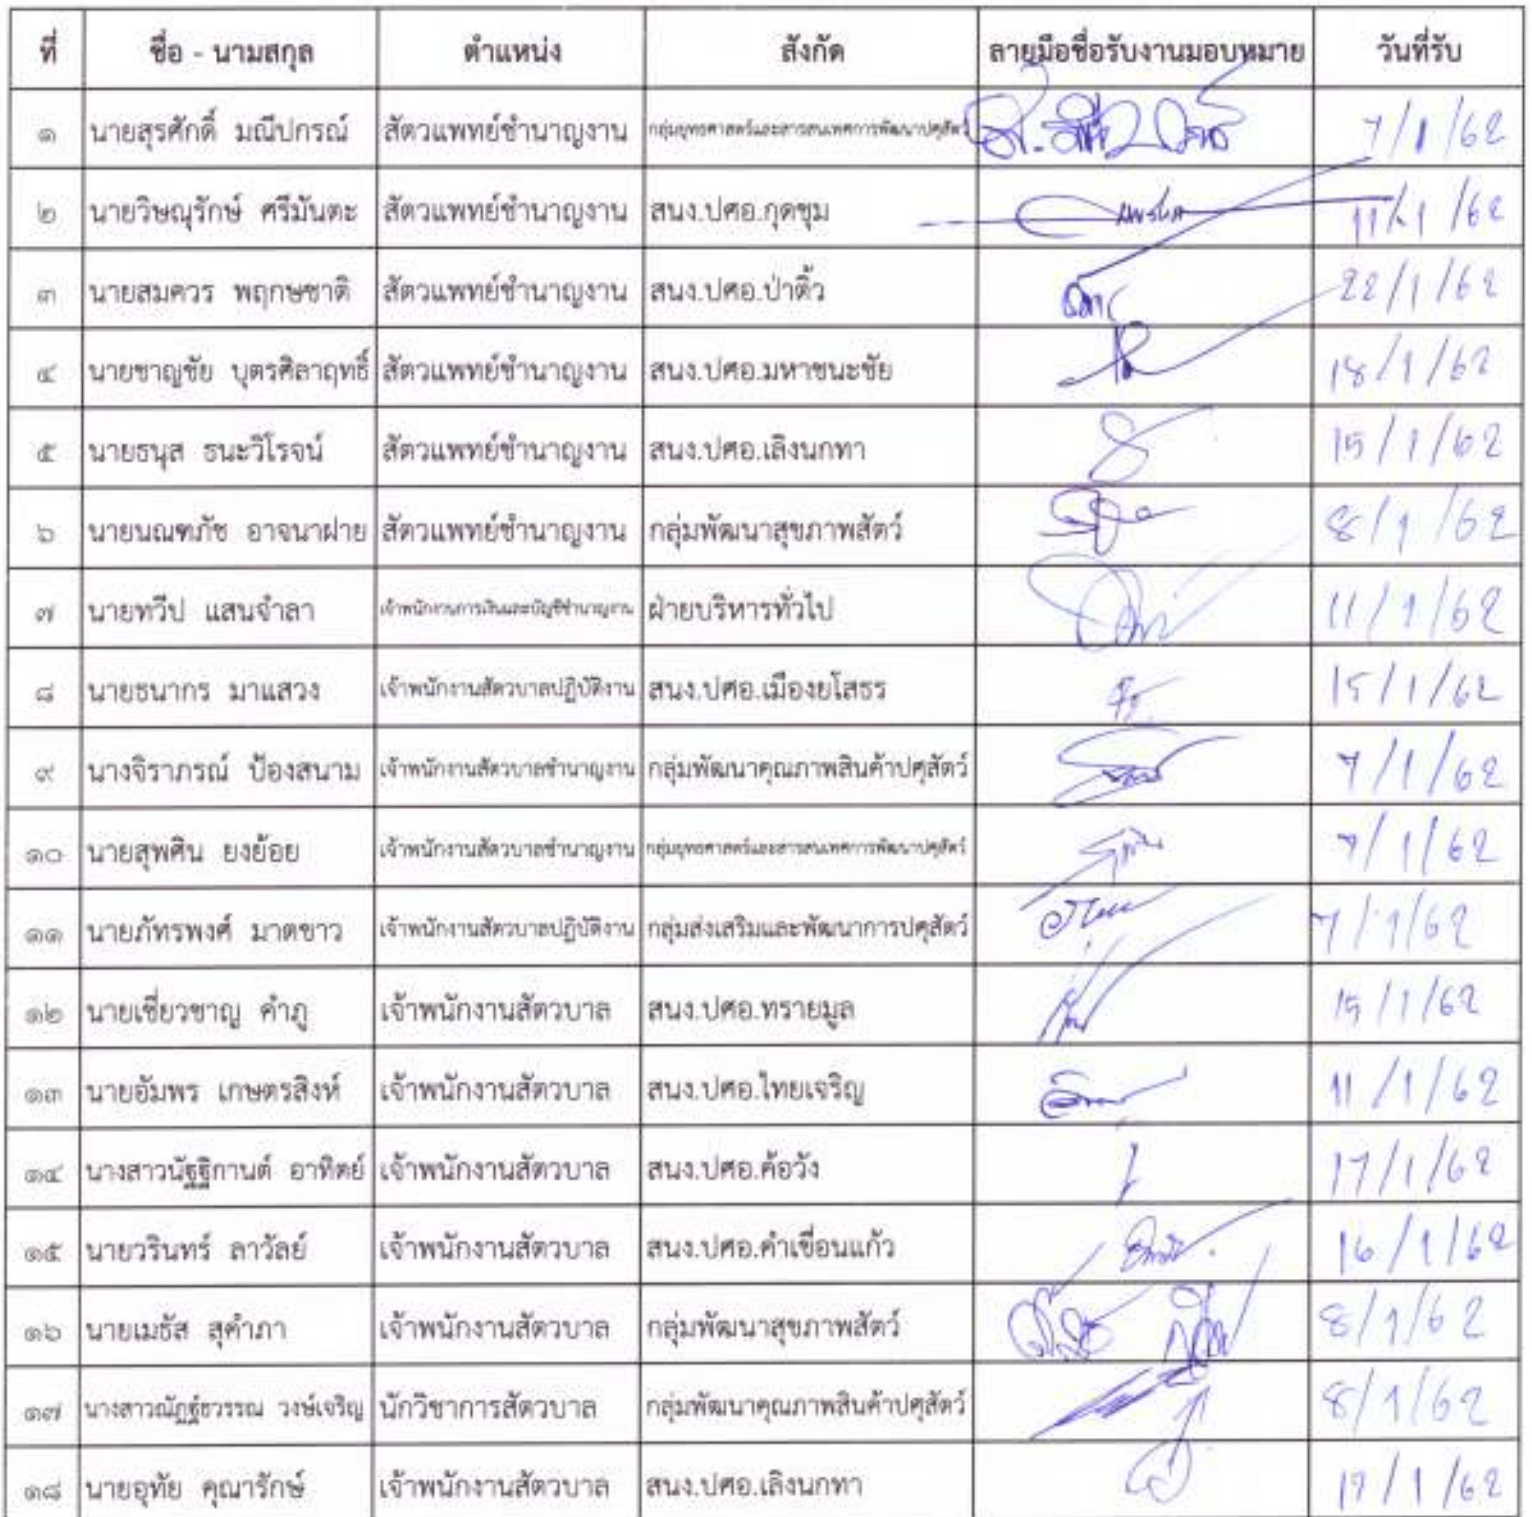 ที่ ชื่อ - นามสกุล ตำแหน่ง สังกัด ลายมือชื่อรับงานมอบหมาย วันที่รับ
๑ นายสุรศักดิ์ มณีปกรณ์ สัตวแพทย์ชำนาญงาน กลุ่มยุทธศาสตร์และสารสนเทศการพัฒนาปศุสัตว์ 7/1/62
๒ นายวิษณุรักษ์ ศรีมันตะ สัตวแพทย์ชำนาญงาน สนง.ปศอ.กุดชุม 11/1/62
๓ นายสมควร พฤกษชาติ สัตวแพทย์ชำนาญงาน สนง.ปศอ.ป่าติ้ว 22/1/62
๔ นายชาญชัย บุตรศิลาฤทธิ์ สัตวแพทย์ชำนาญงาน สนง.ปศอ.มหาชนะชัย 18/1/62
๕ นายธนุส ธนะวิโรจน์ สัตวแพทย์ชำนาญงาน สนง.ปศอ.เลิงนกทา 15/1/62
๖ นายนณฑภัช อาจนาฝาย สัตวแพทย์ชำนาญงาน กลุ่มพัฒนาสุขภาพสัตว์ 8/1/62
๗ นายทวีป แสนจำลา เจ้าพนักงานการเงินและบัญชีชำนาญงาน ฝ่ายบริหารทั่วไป 11/1/62
๘ นายธนากร มาแสวง เจ้าพนักงานสัตวบาลปฏิบัติงาน สนง.ปศอ.เมืองยโสธร 15/1/62
๙ นางจิราภรณ์ ป้องสนาม เจ้าพนักงานสัตวบาลชำนาญงาน กลุ่มพัฒนาคุณภาพสินค้าปศุสัตว์ 7/1/62
๑๐ นายสุพศิน ยงย้อย เจ้าพนักงานสัตวบาลชำนาญงาน กลุ่มยุทธศาสตร์และสารสนเทศการพัฒนาปศุสัตว์ 7/1/62
๑๑ นายภัทรพงศ์ มาตขาว เจ้าพนักงานสัตวบาลปฏิบัติงาน กลุ่มส่งเสริมและพัฒนาการปศุสัตว์ 7/1/62
๑๒ นายเชี่ยวชาญ คำภู เจ้าพนักงานสัตวบาล สนง.ปศอ.ทรายมูล 15/1/62
๑๓ นายอัมพร เกษตรสิงห์ เจ้าพนักงานสัตวบาล สนง.ปศอ.ไทยเจริญ 11/1/62
๑๔ นางสาวนัฐฐิกานต์ อาทิตย์ เจ้าพนักงานสัตวบาล สนง.ปศอ.ค้อวัง 17/1/62
๑๕ นายวรินทร์ ลาวัลย์ เจ้าพนักงานสัตวบาล สนง.ปศอ.คำเขื่อนแก้ว 16/1/62
๑๖ นายเมธัส สุคำภา เจ้าพนักงานสัตวบาล กลุ่มพัฒนาสุขภาพสัตว์ 8/1/62
๑๗ นางสาวณัฏฐ์ธวรรณ วงษ์เจริญ นักวิชาการสัตวบาล กลุ่มพัฒนาคุณภาพสินค้าปศุสัตว์ 8/1/62
๑๘ นายอุทัย คุณารักษ์ เจ้าพนักงานสัตวบาล สนง.ปศอ.เลิงนกทา 17/1/62